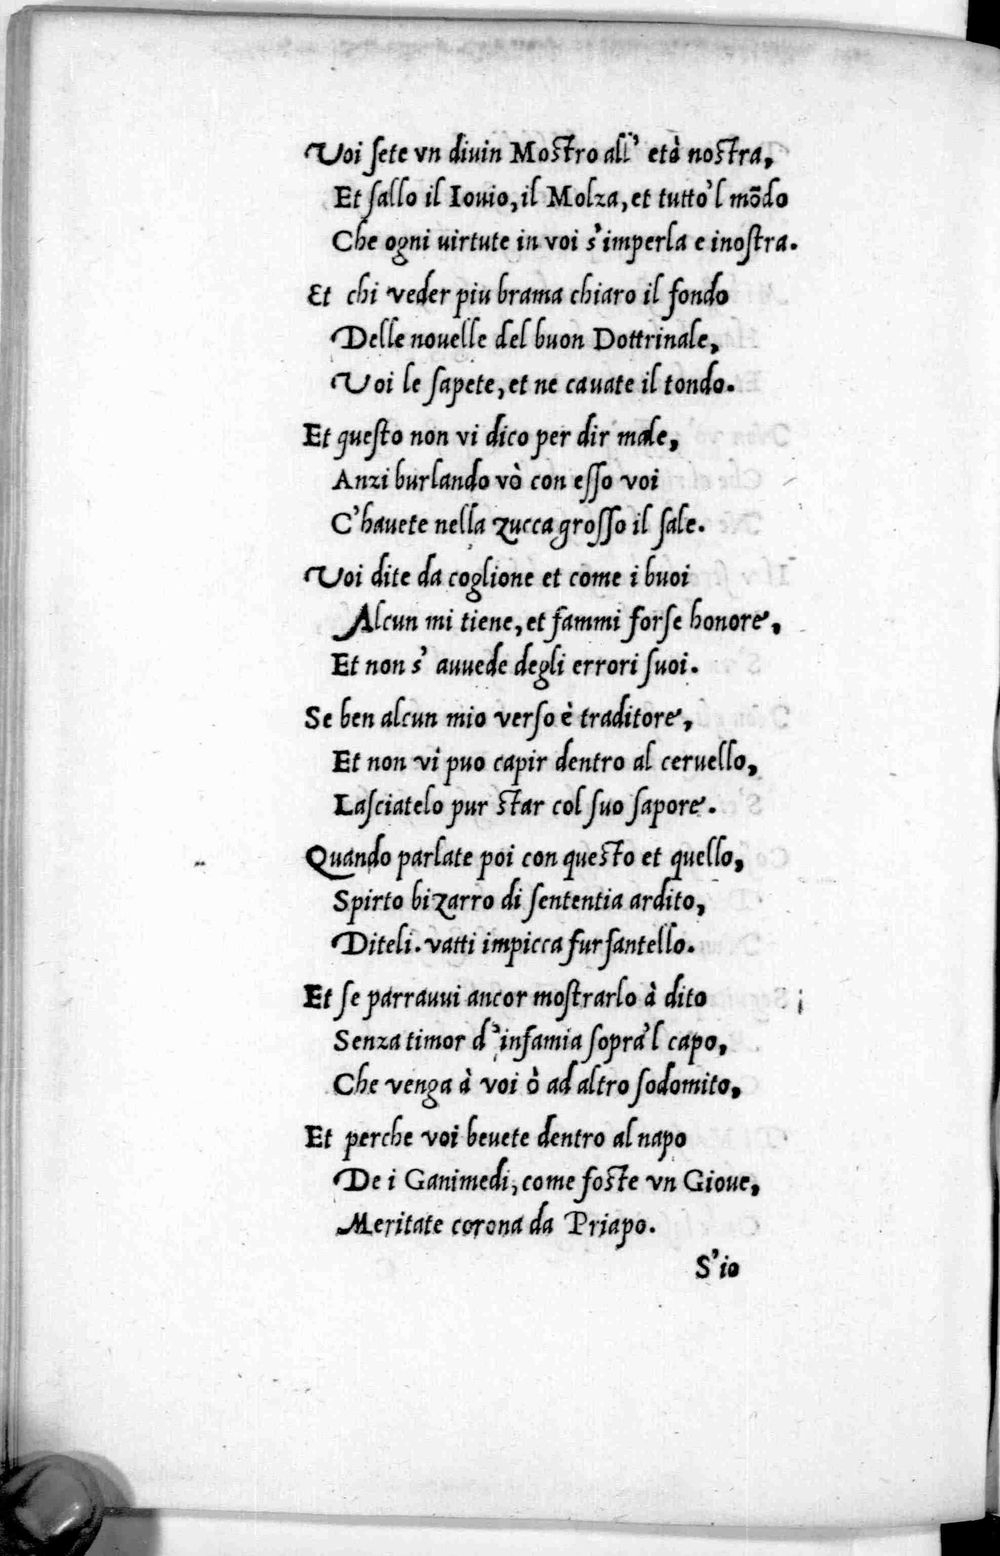 Voi sete vn diuin Mostro all' età nostra,
Et sallo il Iouio, il Molza, et tutto'l mōdo
Che ogni uirtute in voi s'imperla e inostra.
Et chi veder piu brama chiaro il fondo
Delle nouelle del buon Dottrinale,
Voi le sapete, et ne cauate il tondo.
Et questo non vi dico per dir male,
Anzi burlando vò con esso voi
C'hauete nella zucca grosso il sale.
Voi dite da coglione et come i buoi
Alcun mi tiene, et fammi forse honore,
Et non s' auuede degli errori suoi.
Se ben alcun mio verso è traditore,
Et non vi puo capir dentro al ceruello,
Lasciatelo pur star col suo sapore.
Quando parlate poi con questo et quello,
Spirto bizarro di sententia ardito,
Diteli. vatti impicca furfantello.
Et se parrauui ancor mostrarlo à dito
Senza timor d'infamia sopra'l capo,
Che venga à voi ò ad altro sodomito,
Et perche voi beuete dentro al napo
De i Ganimedi, come foste vn Gioue,
Meritate corona da Priapo.
S'io